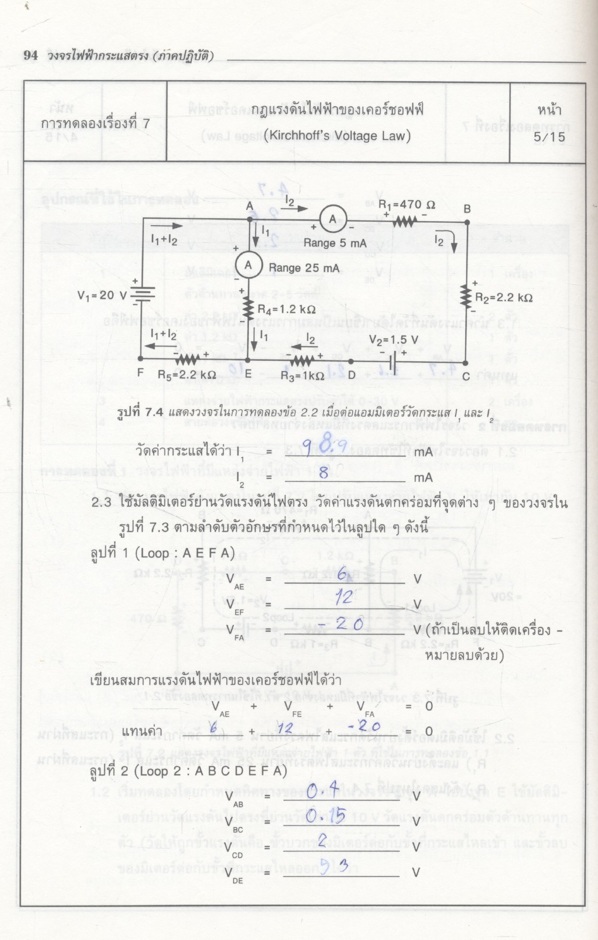 94 วงจรไฟฟ้ากระแสตรง (ภาคปฏิบัติ)
การทดลองเรื่องที่ 7
กฎแรงดันไฟฟ้าของเคอร์ชอฟฟ์
(Kirchhoff's Voltage Law)
หน้า
5/15
A
I2
A
+ -
Range 5 mA
R1=470 Ω
+ -
B
I1+I2
I1
I2
+
A
-
Range 25 mA
V1=20 V
+
-
+
R4=1.2 kΩ
-
I1
+
R2=2.2 kΩ
-
I1+I2
I2
V2=1.5 V
- +
- +
- +
F
R5=2.2 kΩ
E
R3=1kΩ
D
C
รูปที่ 7.4 แสดงวงจรในการทดลองข้อ 2.2 เมื่อต่อแอมมิเตอร์วัดกระแส I1 และ I2
วัดค่ากระแสได้ว่า I1 = 9 8.9 mA
I2 = 8 mA
2.3 ใช้มัลติมิเตอร์ย่านวัดแรงดันไฟตรง วัดค่าแรงดันตกคร่อมที่จุดต่าง ๆ ของวงจรใน
รูปที่ 7.3 ตามลำดับตัวอักษรที่กำหนดไว้ในลูปใด ๆ ดังนี้
ลูปที่ 1 (Loop : A E F A)
VAE = 6 V
VEF = 12 V
VFA = - 20 V (ถ้าเป็นลบให้ติดเครื่อง -
หมายลบด้วย)
เขียนสมการแรงดันไฟฟ้าของเคอร์ชอฟฟ์ได้ว่า
VAE + VFE + VFA = 0
แทนค่า 6 + 12 + -20 = 0
ลูปที่ 2 (Loop 2 : A B C D E F A)
VAB = 0.4 V
VBC = 0.15 V
VCD = 2 V
VDE = 3 V